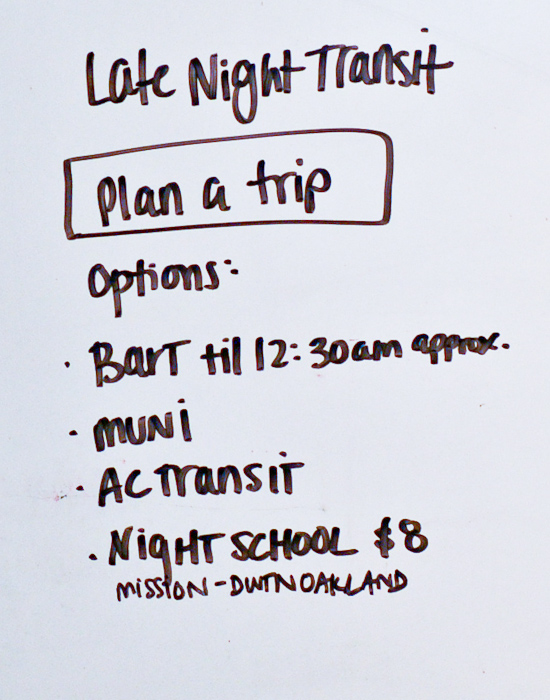 Late Night Transit
Plan a trip
Options:
· BarT til 12:30am approx.
· MUNI
· AC Transit
· NigHT SCHOOL $8
MISSION - DWTNOAKLAND